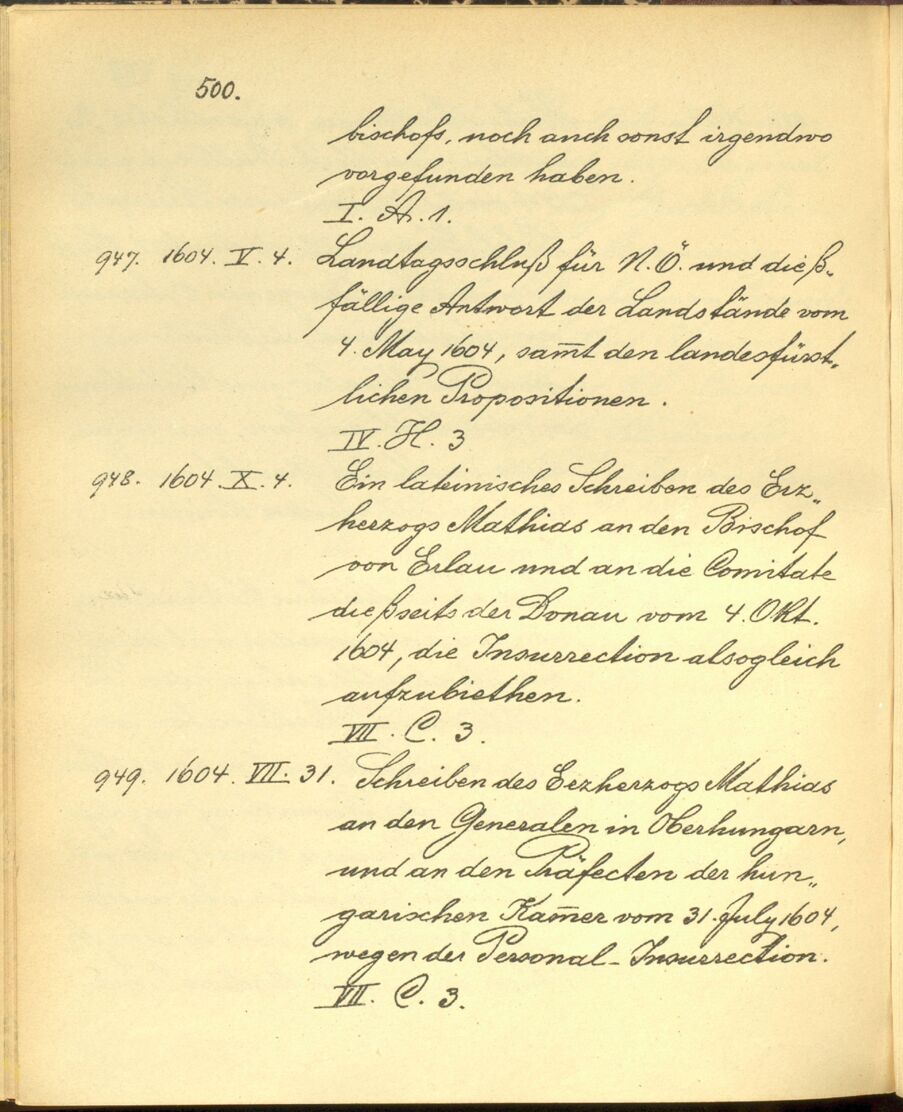 500.
bischofs, noch auch sonst irgendwo
vorgefunden haben.
I. A. 1.
947. 1604. V. 4. Landtagsschluß für N.Ö. und dieß„
fällige Antwort der Landstände vom
4. May 1604, sam̅t den landesfürst„
lichen Propositionen.
IV. H. 3
948. 1604. X. 4. Ein lateinisches Schreiben des Erz„
herzogs Mathias an den Bischof
von Erlau und an die Comitate
dießseits der Donau vom 4. Okt.
1604, die Insurrection alsogleich
aufzubiethen.
VII. C. 3.
949. 1604. VII. 31. Schreiben des Erzherzogs Mathias
an den Generalen in Oberhungarn,
und an den Präfecten der hun„
garischen Kam̅er vom 31. July 1604,
wegen der Personal-Insurrection.
VII. C. 3.